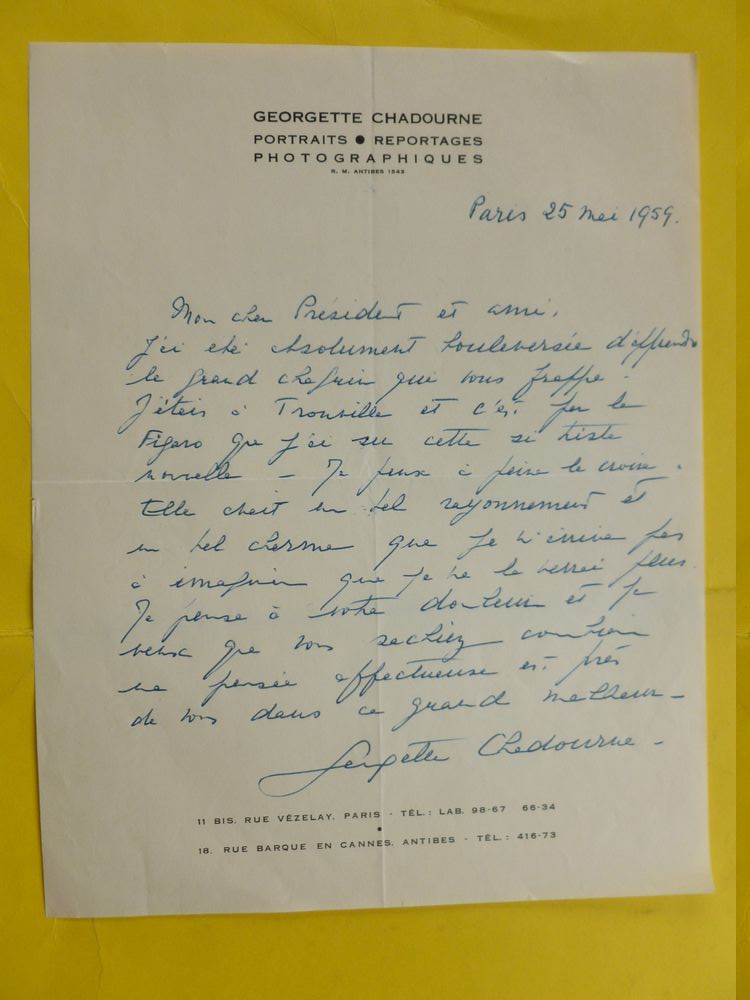 GEORGETTE CHADOURNE
PORTRAITS ● REPORTAGES
PHOTOGRAPHIQUES
R. M. ANTIBES 1543
Paris 25 Mai 1959.
Mon cher Président et ami,
J'ai été absolument bouleversée d'apprendre
le grand chagrin qui vous frappe.
J'étais à Trouville et c'est par le
Figaro que j'ai su cette si triste
nouvelle – Je peux à peine le croire.
Elle avait un tel rayonnement et
un tel charme que je n'arrive pas
à imaginer que je ne la verrai plus.
Je pense à votre douleur et je
veux que vous sachiez combien
ma pensée affectueuse est près
de vous dans ce grand malheur –
Georgette Chadourne –
11 BIS, RUE VÉZELAY, PARIS - TÉL.: LAB. 98-67 66-34
•
18, RUE BARQUE EN CANNES, ANTIBES - TÉL.: 416-73